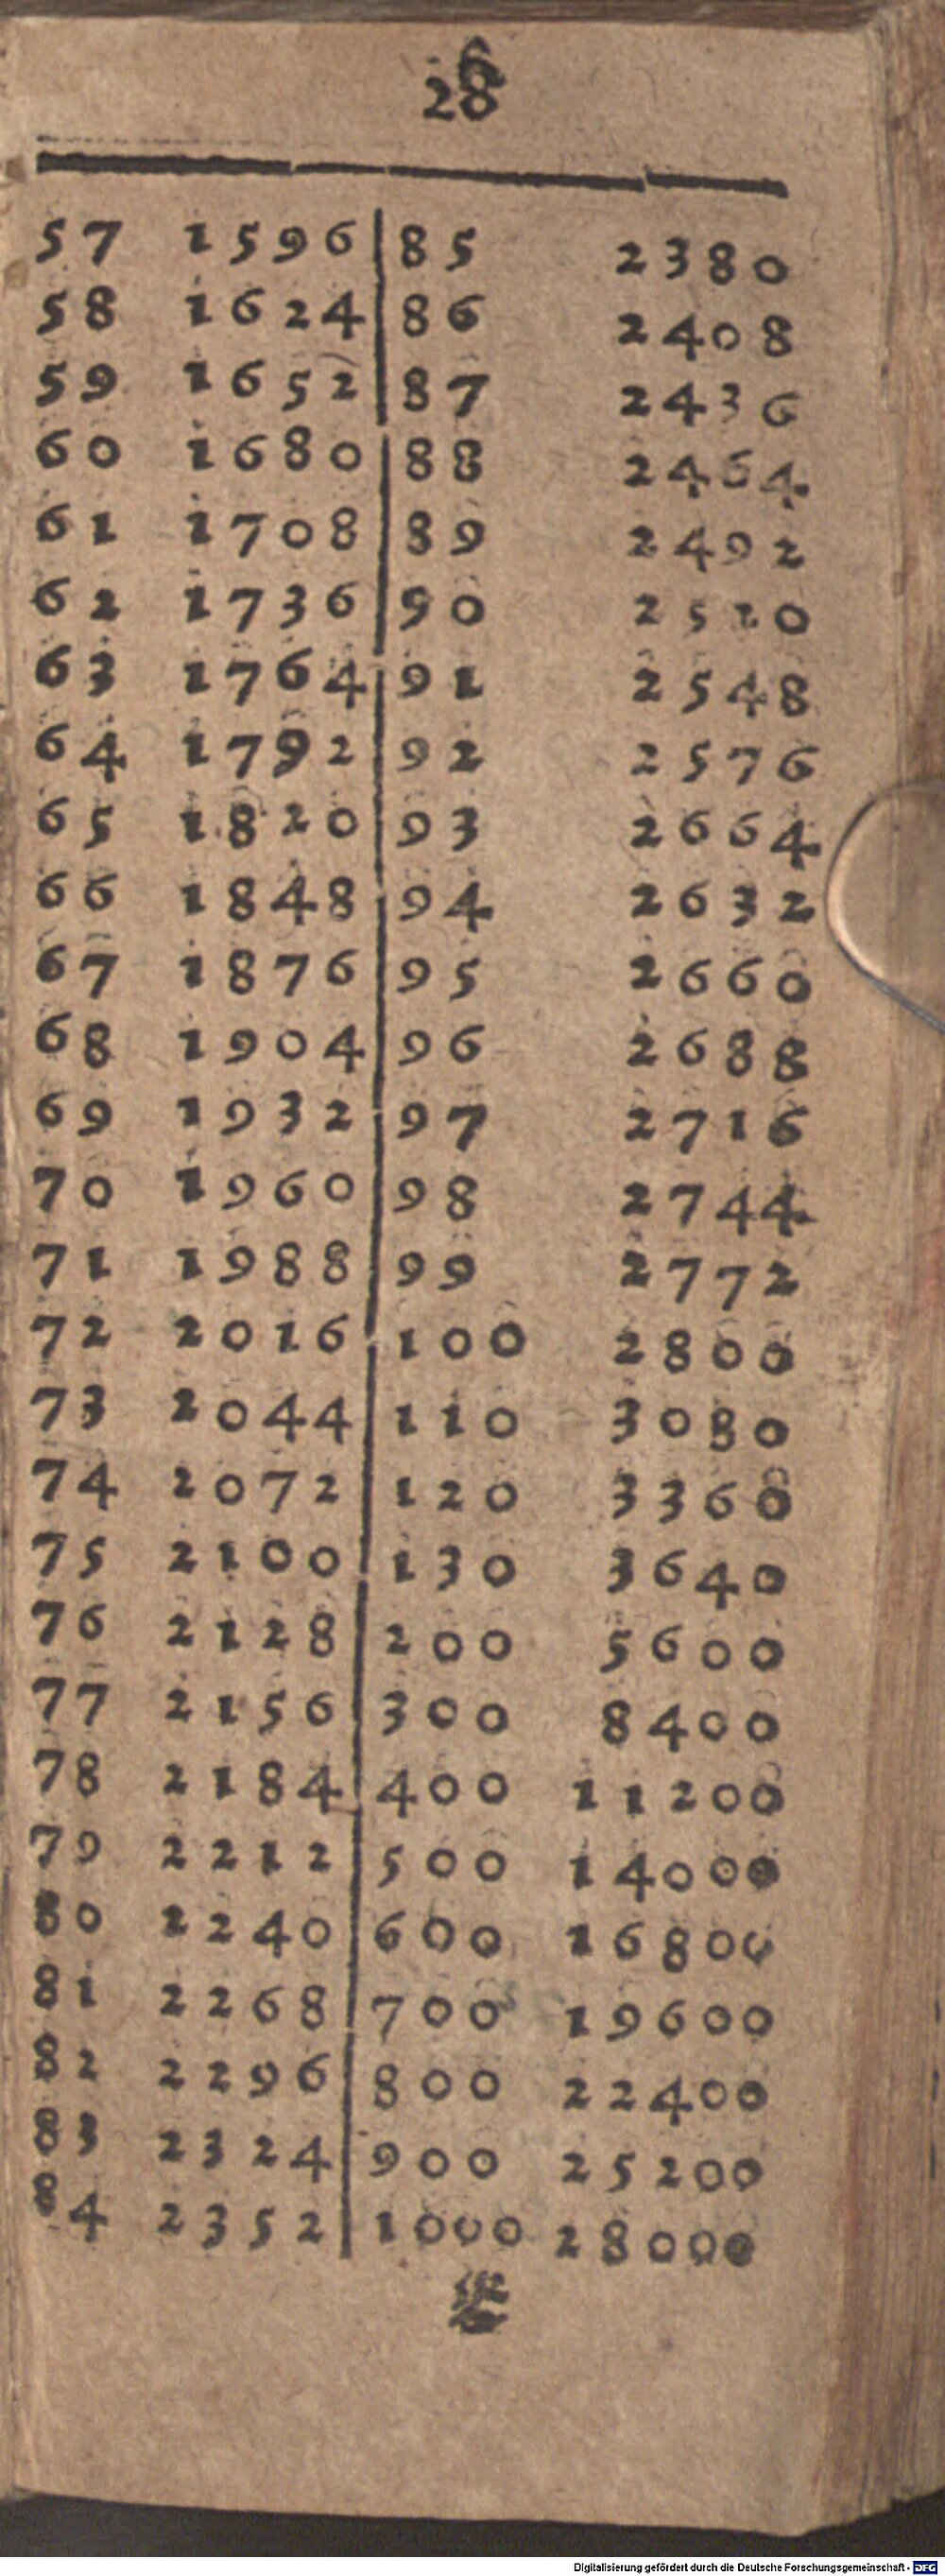 28
57 1596 85 2380
58 1624 86 2408
59 1652 87 2436
60 1680 88 2464
61 1708 89 2492
62 1736 90 2520
63 1764 91 2548
64 1792 92 2576
65 1820 93 2664
66 1848 94 2632
67 1876 95 2660
68 1904 96 2688
69 1932 97 2716
70 1960 98 2744
71 1988 99 2772
72 2016 100 2800
73 2044 110 3080
74 2072 120 3360
75 2100 130 3640
76 2128 200 5600
77 2156 300 8400
78 2184 400 11200
79 2212 500 14000
80 2240 600 16800
81 2268 700 19600
82 2296 800 22400
83 2324 900 25200
84 2352 1000 28000
Digitalisierung gefördert durch die Deutsche Forschungsgemeinschaft - DFG